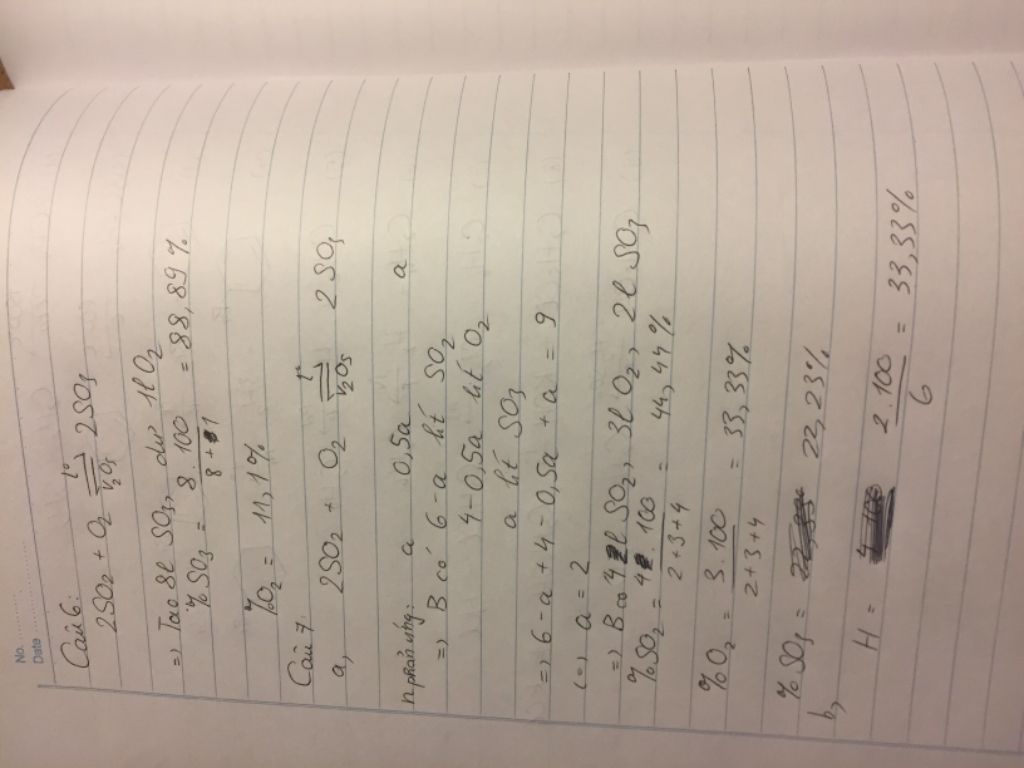 No.
Date
Câu 6:
2SO₂ + O₂ ⇌ 2SO₃
t°
V₂O₅
=> Tạo 8l SO₃, dư 1l O₂
%SO₃ = 8.100 / 8+1 = 88,89%
%O₂ = 11,1%
Câu 7
a, 2SO₂ + O₂ ⇌ 2SO₃
t°
V₂O₅
n phản ứng: a 0,5a a
=> B có 6-a lít SO₂
4-0,5a lít O₂
a lít SO₃
=> 6-a + 4-0,5a + a = 9
(=) a = 2
=> B có 4l SO₂, 3l O₂, 2l SO₃
%SO₂ = 4.100 / 2+3+4 = 44,44%
%O₂ = 3.100 / 2+3+4 = 33,33%
%SO₃ = 22,23%
b,
H = 2.100 / 6 = 33,33%